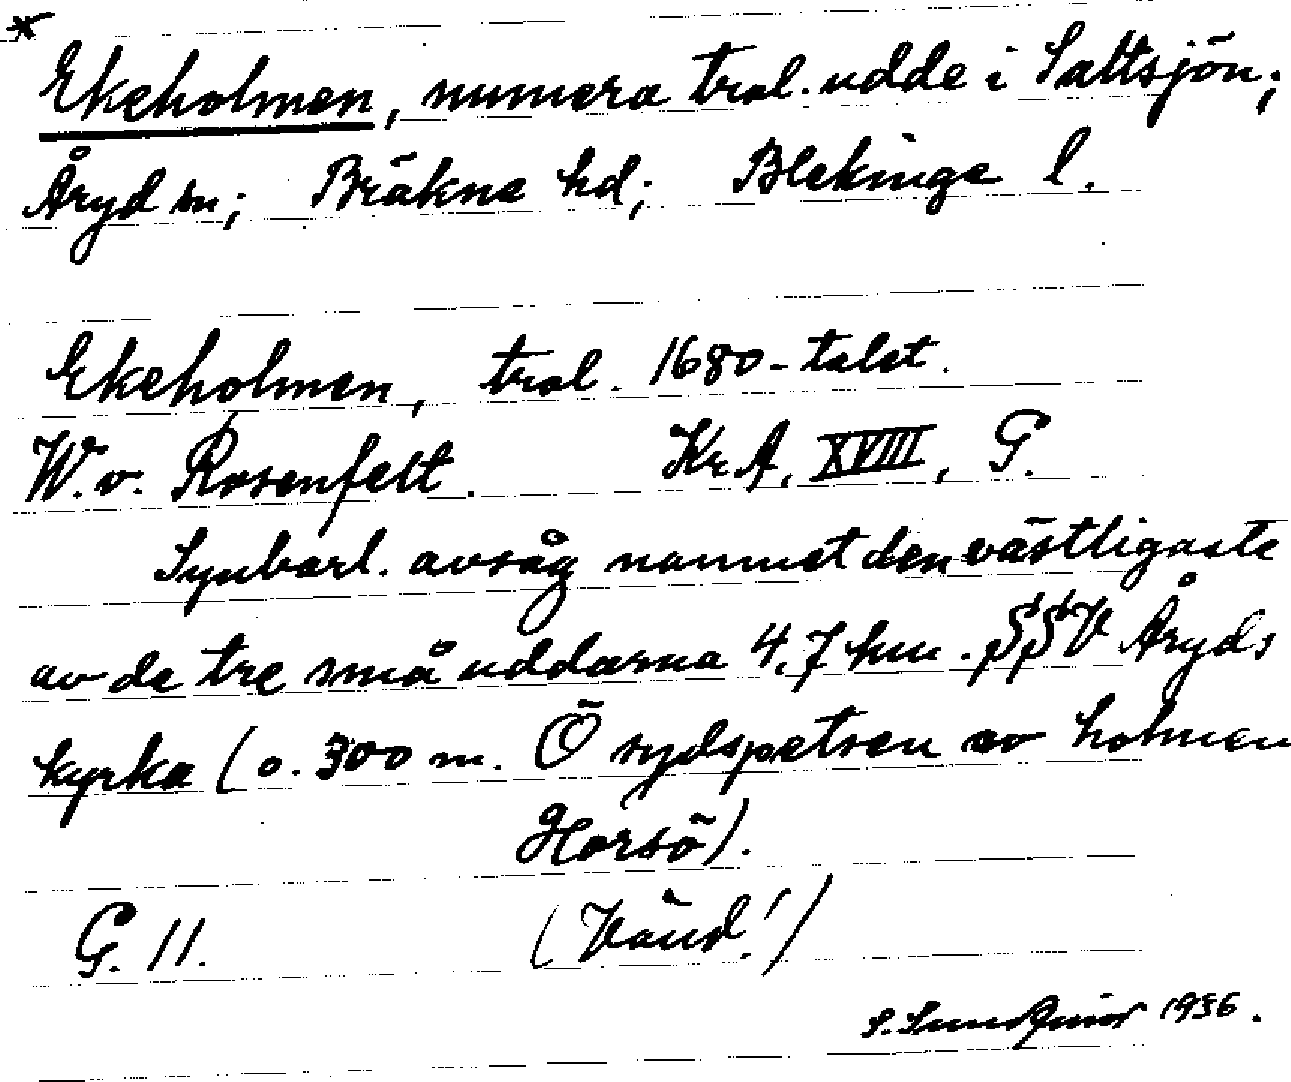 *
Ekeholmen, numera trol. udde i Saltsjön;
Åryd sn; Bräkne hd; Blekinge l.
Ekeholmen, trol. 1680-talet.
W. v. Rosenfelt. Kr.A, XVIII, G.
Synbarl. avsåg namnet den västligaste
av de tre små uddarna 4,7 km. SSV Åryds
kyrka (o. 300 m. Ö sydspetsen av holmen
Horsö).
G. 11. (Vänd!)
S. 1936.